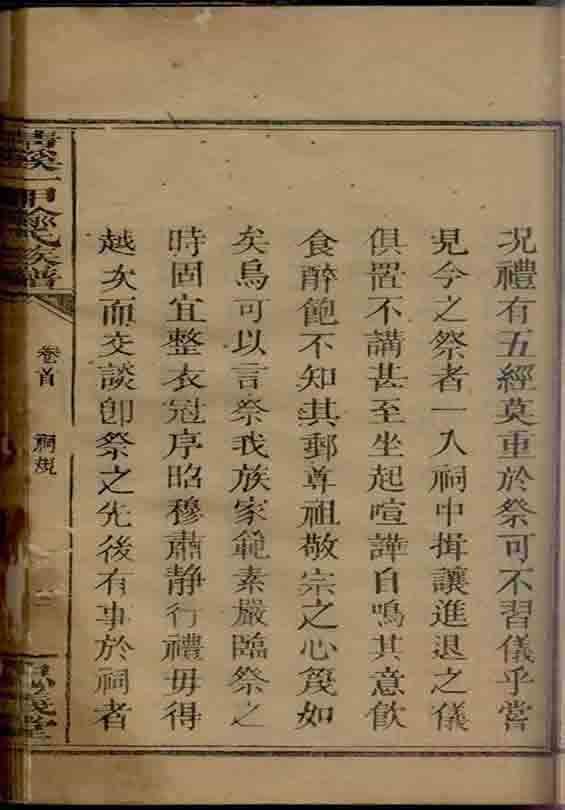 况禮有五經莫重於祭可不習儀乎嘗
見今之祭者一入祠中揖讓進退之儀
俱置不講甚至坐起喧譁自鳴其意飲
食醉飽不知其郵尊祖敬宗之心篾如
矣烏可以言祭我族家範素嚴臨祭之
時固宜整衣冠序昭穆肅静行禮毋得
越次而交談卽祭之先後有事於祠者
一甲 氏族譜
卷首
祠規